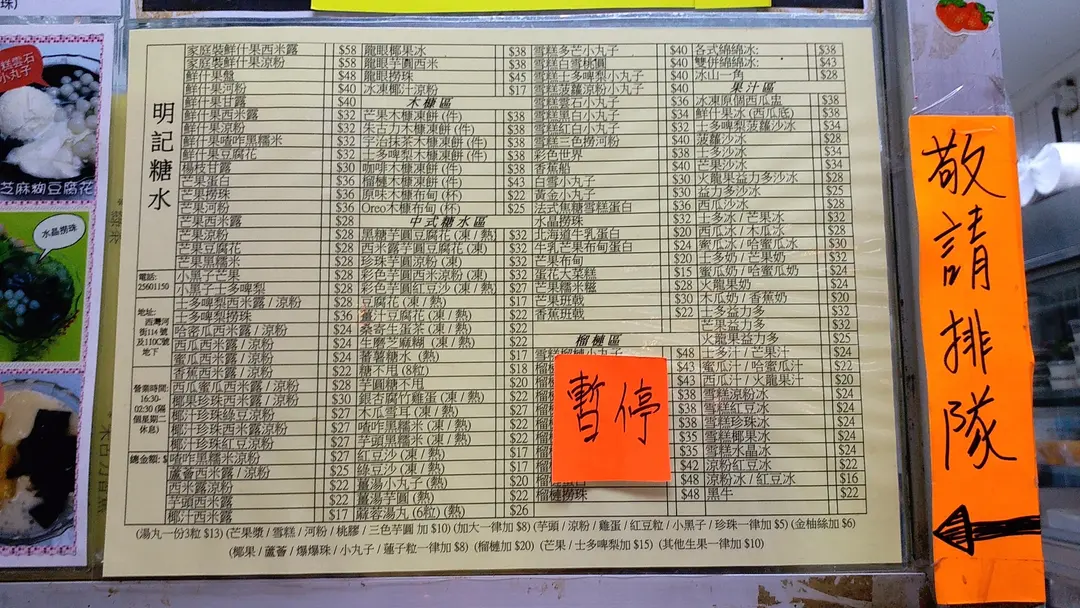 明記糖水
電話:
25601150
地址:
西灣河
街114 號
及110C號
地下
營業時間:
16:30-
02:30 (隔
個星期二
休息)
總金額: $
家庭裝鮮什果西米露 $58
家庭裝鮮什果涼粉 $58
鮮什果盤 $48
鮮什果河粉 $40
鮮什果甘露 $40
鮮什果西米露 $32
鮮什果涼粉 $32
鮮什果喳咋黑糯米 $32
鮮什果豆腐花 $32
楊枝甘露 $30
芒果蛋白 $30
芒果撈珠 $36
芒果河粉 $36
芒果西米露 $28
芒果涼粉 $28
芒果豆腐花 $28
芒果黑糯米 $28
小黑子芒果 $28
小黑子士多啤梨 $28
士多啤梨西米露 / 涼粉 $28
士多啤梨撈珠 $36
哈密瓜西米露 / 涼粉 $24
西瓜西米露 / 涼粉 $24
蜜瓜西米露 / 涼粉 $24
香蕉西米露 / 涼粉 $22
西瓜蜜瓜西米露 / 涼粉 $28
椰果珍珠西米露 / 涼粉 $30
椰汁珍珠綠豆涼粉 $27
椰汁珍珠西米露涼粉 $27
椰汁珍珠紅豆涼粉 $27
喳咋黑糯米涼粉 $27
蘆薈西米露 / 涼粉 $25
西米露涼粉 $22
芋頭西米露 $22
椰汁西米露 $17
龍眼椰果冰 $38
龍眼芋圓西米 $38
龍眼撈珠 $45
冰凍椰汁涼粉 $17
木糠區
芒果木糠凍餅 (件) $38
朱古力木糠凍餅 (件) $38
宇治抹茶木糠凍餅 (件) $38
士多啤梨木糠凍餅 (件) $38
咖啡木糠凍餅 (件) $38
榴槤木糠凍餅 (件) $43
原味木糠布甸 (杯) $22
Oreo木糠布甸 (杯) $25
中式糖水區
黑糖芋圓豆腐花 (凍 / 熱) $32
西米露芋圓豆腐花 (凍) $32
珍珠芋圓涼粉 (凍) $32
彩色芋圓西米涼粉 (凍) $32
彩色芋圓紅豆沙 (凍 / 熱) $32
豆腐花 (凍 / 熱) $17
薑汁豆腐花 (凍 / 熱) $22
桑寄生蛋茶 (凍 / 熱) $22
生磨芝麻糊 (凍 / 熱) $22
蕃薯糖水 (熱) $17
糖不甩 (8粒) $18
芋圓糖不甩 $20
銀杏腐竹雞蛋 (凍 / 熱) $22
木瓜雪耳 (凍 / 熱) $22
喳咋黑糯米 (凍 / 熱) $22
芋頭黑糯米 (凍 / 熱) $22
紅豆沙 (凍 / 熱) $17
綠豆沙 (凍 / 熱) $17
薑湯小丸子 (熱) $20
薑湯芋圓 (熱) $22
麻蓉湯丸 (6粒) (熱) $26
雪糕多芒小丸子 $40
雪糕白雪桃圓 $40
雪糕士多啤梨小丸子 $40
雪糕菠蘿涼粉小丸子 $40
雪糕雲石小丸子 $36
雪糕黑白小丸子 $34
雪糕紅白小丸子 $32
雪糕三色撈河粉 $40
彩色世界 $38
香蕉船 $40
白雪小丸子 $30
黃金小丸子 $30
法式焦糖雪糕蛋白 $36
水晶撈珠 $32
北海道牛乳蛋白 $20
牛乳芒果布甸蛋白 $24
芒果布甸 $20
蛋花大菜糕 $15
芒果糯米糍 $28
芒果班戟 $30
香蕉班戟 $22
榴槤區
雪糕榴槤小丸子 $48
$43
$43
$38
$38
$38
$35
$42
榴槤蛋白 $40
榴槤撈珠 $48
各式綿綿冰: $38
雙併綿綿冰: $43
冰山一角 $28
果汁區
冰凍原個西瓜盅 $38
鮮什果冰 (西瓜底) $38
士多啤梨菠蘿沙冰 $34
菠蘿沙冰 $28
士多沙冰 $34
芒果沙冰 $34
火龍果益力多沙冰 $28
益力多沙冰 $25
西瓜沙冰 $28
士多冰 / 芒果冰 $32
西瓜冰 / 木瓜冰 $28
蜜瓜冰 / 哈蜜瓜冰 $30
士多奶 / 芒果奶 $32
蜜瓜奶 / 哈蜜瓜奶 $24
火龍果奶 $24
木瓜奶 / 香蕉奶 $20
士多益力多 $32
芒果益力多 $32
火龍果益力多 $24
士多汁 / 芒果汁 $24
蜜瓜汁 / 哈蜜瓜汁 $22
西瓜汁 / 火龍果汁 $20
雪糕涼粉冰 $24
雪糕紅豆冰 $24
雪糕珍珠冰 $24
雪糕椰果冰 $24
雪糕水晶冰 $24
涼粉紅豆冰 $22
涼粉冰 / 紅豆冰 $16
黑牛 $22
(湯丸一份3粒 $13) (芒果漿 / 雪糕 / 河粉 / 桃膠 / 三色芋圓 加 $10) (加大一律加 $8) (芋頭 / 涼粉 / 雞蛋 / 紅豆粒 / 小黑子 / 珍珠一律加 $5) (金柚絲加 $6)
(椰果 / 蘆薈 / 爆爆珠 / 小丸子 / 蓮子粒一律加 $8) (榴槤加 $20) (芒果 / 士多啤梨加 $15) (其他生果一律加 $10)
暫停
敬請排隊
芝麻糊豆腐花
水晶撈珠